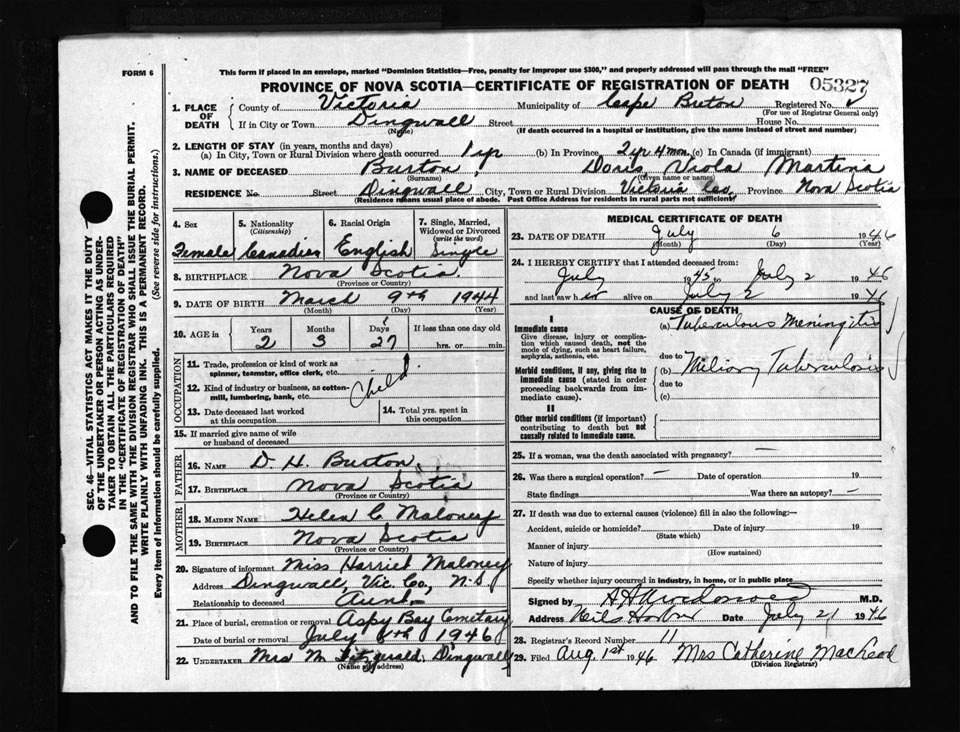 FORM 6
This form if placed in an envelope, marked “Dominion Statistics—Free, penalty for improper use $300,” and properly addressed will pass through the mail “FREE”
PROVINCE OF NOVA SCOTIA—CERTIFICATE OF REGISTRATION OF DEATH 05327
1. PLACE OF DEATH
County of Victoria Municipality of Cape Breton Registered No.
(For use of Registrar General only)
If in City or Town Dingwall Street House No.
(Name) (If death occurred in a hospital or institution, give the name instead of street and number)
2. LENGTH OF STAY (in years, months and days)
(a) In City, Town or Rural Division where death occurred 1 yr (b) In Province 2 yr 4 mon. (c) In Canada (if immigrant)
3. NAME OF DECEASED Burton, Doris Viola Martina
(Surname) (Given name or names)
RESIDENCE No. Street Dingwall City, Town or Rural Division Victoria Co. Province Nova Scotia
(Residence means usual place of abode. Post Office Address for residents in rural parts not sufficient)
4. Sex
Female
5. Nationality
(Citizenship)
Canadian
6. Racial Origin
English
7. Single, Married, Widowed or Divorced
(write the word)
Single
8. BIRTHPLACE Nova Scotia.
(Province or Country)
9. DATE OF BIRTH March 9th 1944
(Month) (Day) (Year)
10. AGE in Years Months Days If less than one day old
2 3 27 hrs. or min.
OCCUPATION
11. Trade, profession or kind of work as spinner, teamster, office clerk, etc.
12. Kind of industry or business, as cotton-mill, lumbering, bank, etc.
Child
13. Date deceased last worked at this occupation
14. Total yrs. spent in this occupation
15. If married give name of wife or husband of deceased
FATHER
16. NAME D. H. Burton
17. BIRTHPLACE Nova Scotia
(Province or Country)
MOTHER
18. MAIDEN NAME Helen C Maloney
19. BIRTHPLACE Nova Scotia
(Province or Country)
20. Signature of informant Miss Harriet Maloney
Address Dingwall, Vic. Co., N-S
Relationship to deceased Aunt
21. Place of burial, cremation or removal Aspy Bay Cemetary
Date of burial or removal July 8th 1946
22. UNDERTAKER Mrs M Fitzgerald, Dingwall
(Name and address)
MEDICAL CERTIFICATE OF DEATH
23. DATE OF DEATH July 6 1946
(Month) (Day) (Year)
24. I HEREBY CERTIFY that I attended deceased from:
July 1945 to July 2 1946
and last saw her alive on July 2 1946
CAUSE OF DEATH
I
Immediate cause
Give disease, injury or complication which caused death, not the mode of dying, such as heart failure, asphyxia, asthenia, etc.
(a) Tuberculous Meningitis
due to
Morbid conditions, if any, giving rise to immediate cause (stated in order proceeding backwards from immediate cause).
(b) Miliary Tuberculosis
due to
(c)
II
Other morbid conditions (if important) contributing to death but not causally related to immediate cause.
25. If a woman, was the death associated with pregnancy? —
26. Was there a surgical operation? — Date of operation 19
State findings Was there an autopsy? —
27. If death was due to external causes (violence) fill in also the following:—
Accident, suicide or homicide? Date of injury 19
(State which)
Manner of injury
(How sustained)
Nature of injury
Specify whether injury occurred in industry, in home, or in public place
Signed by M.D.
Address Neils Harbor Date July 21 1946
28. Registrar's Record Number 11
29. Filed Aug. 1st 1946 Mrs Catherine MacLeod
(Division Registrar)
SEC. 46—VITAL STATISTICS ACT MAKES IT THE DUTY
OF THE UNDERTAKER OR PERSON ACTING AS UNDER-
TAKER TO OBTAIN ALL THE PARTICULARS REQUIRED
IN THE “CERTIFICATE OF REGISTRATION OF DEATH”
AND TO FILE THE SAME WITH THE DIVISION REGISTRAR WHO SHALL ISSUE THE BURIAL PERMIT.
WRITE PLAINLY WITH UNFADING INK. THIS IS A PERMANENT RECORD.
Every item of information should be carefully supplied. (See reverse side for instructions.)